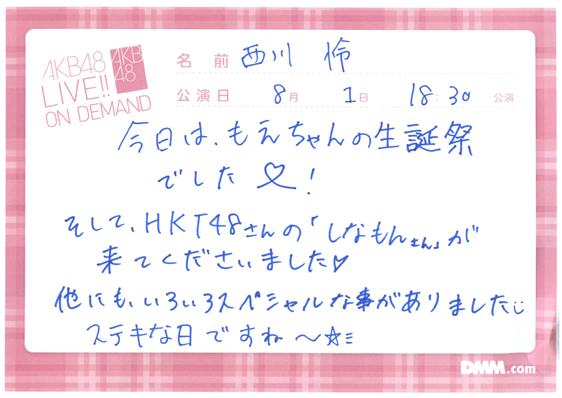 AKB48
LIVE!!
ON DEMAND
AKB
48
名前 西川 怜
公演日 8月 1日 18:30 公演
今日は、もえちゃんの生誕祭
でした♡!
そして、HKT48さんの「しなもんさん」が
来てくださいました♡
他にも、いろいろスペシャルな事がありました
ステキな日ですね〜☆
DMM.com